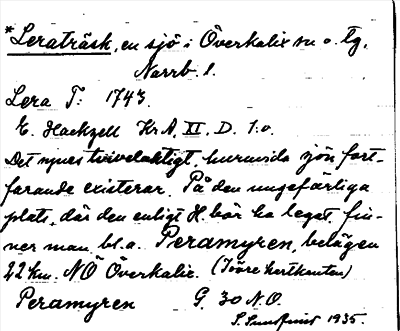 *Leraträsk, en sjö i Överkalix sn o. tg,
Norrb. l.
Lera T: 1743.
E. Hackzell Kr A, XI. D. 1:o.
Det synes tvivelaktigt, huruvida sjön fort-
farande existerar. På den ungefärliga
plats, där den enligt H. bör ha legat, fin-
ner man bl.a. Peramyren, belägen
22 km. NÖ Överkalix. (Töre kartkanton)
Peramyren G. 30 N.O.
S. Sundquist 1935.